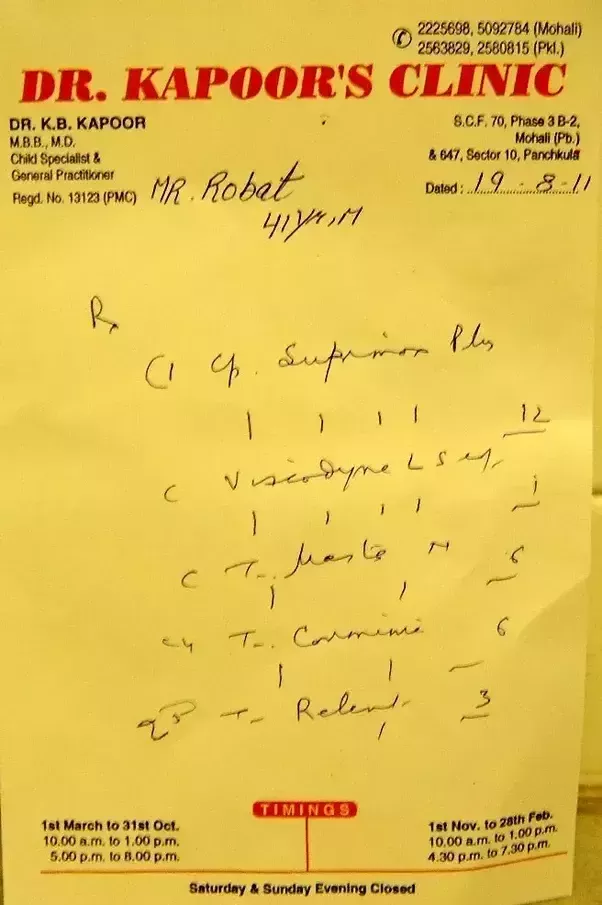 2225698, 5092784 (Mohali)
2563829, 2580815 (Pkl.)
DR. KAPOOR'S CLINIC
DR. K.B. KAPOOR
M.B.B., M.D.
Child Specialist &
General Practitioner
Regd. No. 13123 (PMC)
S.C.F. 70, Phase 3 B-2,
Mohali (Pb.)
& 647, Sector 10, Panchkula
Dated : 19 - 8-11
MR. Robat
41 yr, M
Rx
(1 Cp. Suprimox Plus
| | | | 12
Viscodyne
| | | | 1
T. M 6
| |
T. 6
| |
T. 3
|
TIMINGS
1st March to 31st Oct.
10.00 a.m. to 1.00 p.m.
5.00 p.m. to 8.00 p.m.
1st Nov. to 28th Feb.
10.00 a.m. to 1.00 p.m.
4.30 p.m. to 7.30 p.m.
Saturday & Sunday Evening Closed